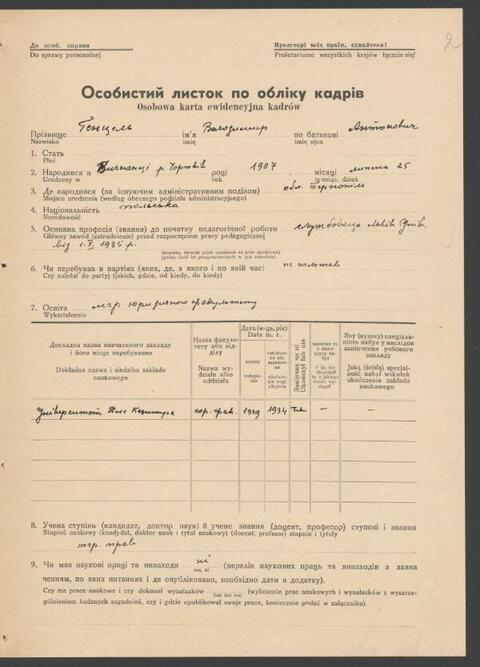 До особ. справи
Do sprawy personalnej
Пролетарі всіх країн, єднайтеся!
Proletariusze wszystkich krajów łączcie się!
2
Особистий листок по обліку кадрів
Osobowa karta ewidencyjna kadrów
Прізвище ім'я Володимир по батькові Антонович
Nazwisko imię imię ojca
1. Стать
Płeć
2. Народився в р. Чортків році 1907 місяці липень 25
Urodzony w rok miesiąc, dzień
3. Де народився (за існуючим адміністративним поділом) обл. Тернопіль
Miejsce urodzenia (według obecnego podziału administracyjnego)
4. Національність польська
Narodowość
5. Основна професія (звання) до початку педагогічної роботи службовець Львів. Унів.
Główny zawód (zatrudnienie) przed rozpoczęciem pracy pedagogicznej
від 1.X 1935 р.
6. Чи перебував в партіях (яких, де, з якого і по якій час:
Czy należał do partyj (jakich, gdzie, od kiedy, do kiedy)
7. Освіта мгр юридичного факультету
Wykształcenie
Докладна назва навчального закладу і його місце перебування
Dokładna nazwa i siedziba zakładu naukowego
Назва факультету або відділу
Nazwa wydziału albo oddziału
Дата (м-ць, рік)
Data m. r.
вступу
Закінчив чи ні
Ukończył lub nie
Яку (вузьку) спеціальність набув у наслідок закінчення учбового закладу
Jaką (ścisłą) specjalność nabył wskutek ukończenia zakładu naukowego
Університет Яна Казимира 1934 так — —
8. Учена ступінь (кандидат, доктор наук) й учене звання (доцент, професор) ступені і звання
Stopień naukowy (kandydat, doktor nauk i tytuł naukowy) (docent, profesor) stopnie i tytuły
мгр. прав
9. Чи має наукові праці та винаходи ні (перелік наукових праць та винаходів з зазна
так, ні
ченням, по яких питаннях і де опубліковано, необхідно дати в додатку).
Czy ma prace naukowe i czy dokonał wynalazków (tak lub nie) (wyliczenie prac naukowych i wynalazków z wyszcze-
gólnieniem badanych zagadnień, czy i gdzie opublikował swoje prace, koniecznie podać w załączniku).